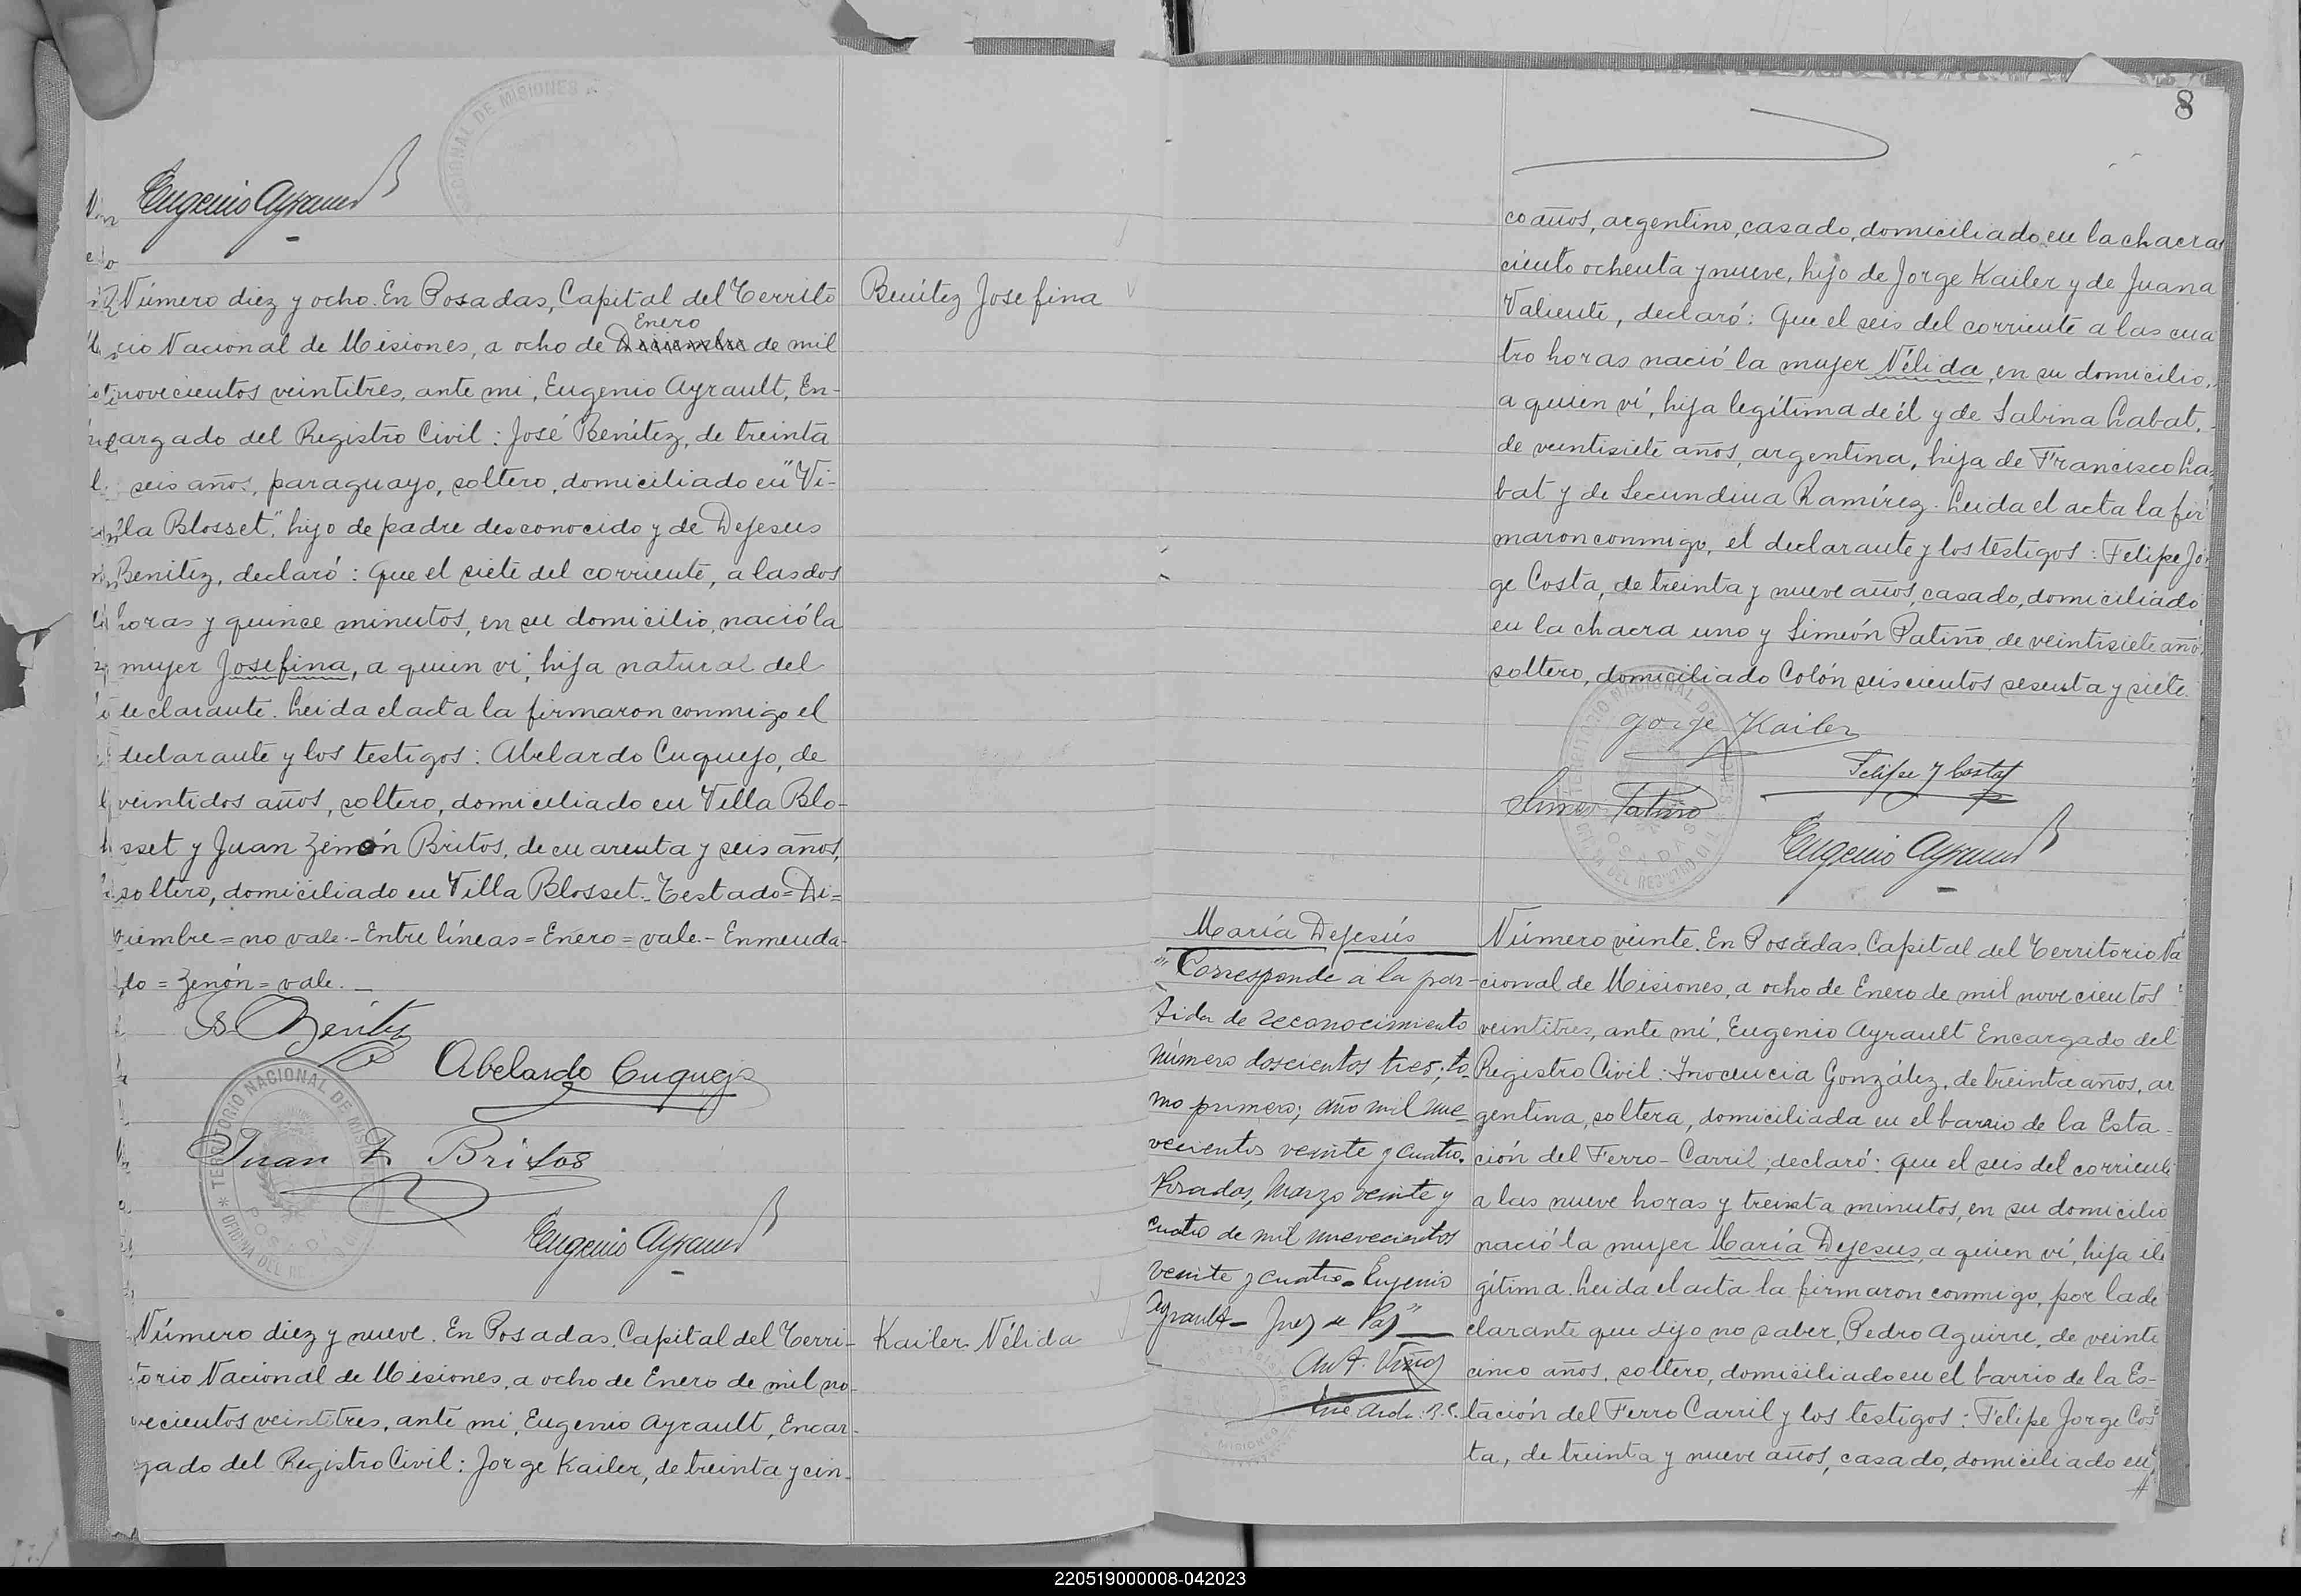 Eugenio Ayrault
Benítez Josefina
Número diez y ocho. En Posadas, Capital del Territo
rio Nacional de Misiones, a ocho de Diciembre de mil
Enero
novecientos veintitres, ante mi, Eugenio Ayrault, En-
cargado del Registro Civil: José Benítez, de treinta
seis años, paraguayo, soltero, domiciliado en "Vi-
lla Blosset", hijo de padre desconocido y de Dejesus
Benitez, declaró: Que el siete del corriente, a las dos
horas y quince minutos, en su domicilio, nació la
mujer Josefina, a quien ví, hija natural del
declarante. Leida el acta la firmaron conmigo el
declarante y los testigos: Abelardo Cuquejo, de
veintidos años, soltero, domiciliado en Villa Blo-
sset y Juan Zenón Britos, de cuarenta y seis años,
soltero, domiciliado en Villa Blosset.- Testado=Di=
ciembre=no vale.-Entre líneas=Enero=vale.-Enmenda-
do = Zenón = vale.-
Benítez
Abelardo Cuquejo
Juan Z. Britos
Eugenio Ayrault
TERRITORIO NACIONAL DE MISIONES
OFICINA DEL REGISTRO CIVIL
POSADAS
Kailer Nélida
Número diez y nueve. En Posadas, Capital del Terri-
torio Nacional de Misiones, a ocho de Enero de mil no-
vecientos veintitres, ante mi, Eugenio Ayrault, Encar-
gado del Registro Civil: Jorge Kailer, de treinta y cin-
8
co años, argentino, casado, domiciliado en la chacra
ciento ochenta y nueve, hijo de Jorge Kailer y de Juana
Valiente, declaró: Que el seis del corriente a las cua
tro horas nació la mujer Nélida, en su domicilio,
a quien ví, hija legítima de él y de Sabina Labat,
de veintisiete años, argentina, hija de Francisco La
bat y de Secundina Ramírez. Leida el acta la fir
maron conmigo, el declarante y los testigos: Felipe Jor
ge Costa, de treinta y nueve años, casado, domiciliado
en la chacra uno y Simeón Patiño, de veintisiete años
soltero, domiciliado Colón seiscientos sesenta y siete.
Jorge Kailer
Felipe J Costa
Simeon Patiño
Eugenio Ayrault
María Dejesús
"Corresponde a la par-
tida de reconocimiento
número doscientos tres; to-
mo primero; año mil nue-
vecientos veinte y cuatro.
Posadas, Marzo veinte y
cuatro de mil nuevecientos
veinte y cuatro- Eugenio
Ayrault- Juez de Paz"
Número veinte. En Posadas, Capital del Territorio Na
cional de Misiones, a ocho de Enero de mil novecientos
veintitres, ante mí, Eugenio Ayrault Encargado del
Registro Civil: Inocencia González, de treinta años, ar
gentina, soltera, domiciliada en el barrio de la Esta=
ción del Ferro-Carril, declaró: que el seis del corriente
a las nueve horas y treinta minutos, en su domicilio
nació la mujer María Dejesus, a quien ví, hija ile
gítima. Leida el acta la firmaron conmigo, por la de
clarante que dijo no saber, Pedro Aguirre, de veinte
cinco años, soltero, domiciliado en el barrio de la Es-
tación del Ferro Carril y los testigos: Felipe Jorge Cos
ta, de treinta y nueve años, casado, domiciliado en
220519000008-042023